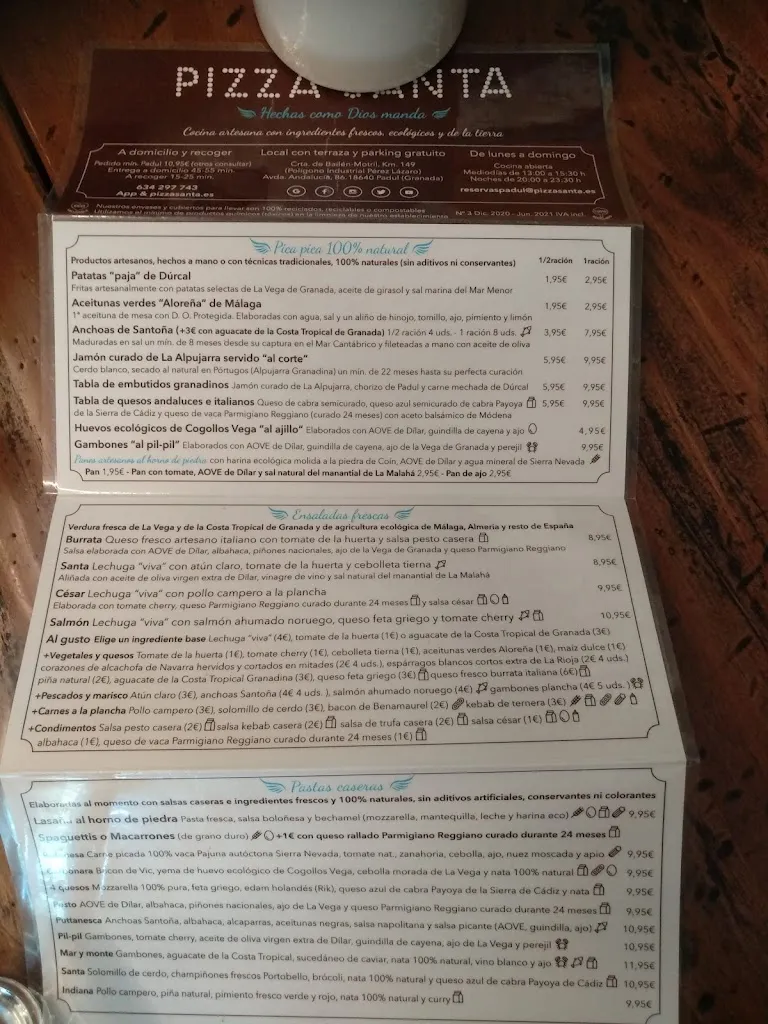 PIZZA SANTA
Hechas como Dios manda
Cocina artesana con ingredientes frescos, ecológicos y de la tierra
A domicilio y recoger
Pedido mín. Padul 10,95€ (otros consultar)
Entrega a domicilio 45-55 min.
A recoger 15-25 min.
634 297 743
App & pizzasanta.es
Local con terraza y parking gratuito
Crta. de Bailén-Motril, Km. 149
(Polígono Industrial Pérez Lázaro)
Avda. Andalucía, 86. 18640 Padul (Granada)
De lunes a domingo
Cocina abierta
Mediodías de 13:00 a 15:30 h
Noches de 20:00 a 23:30 h
reservaspadul@pizzasanta.es
Nuestros envases y cubiertos para llevar son 100% reciclados, reciclables o compostables
Utilizamos el mínimo de productos químicos en la limpieza de nuestro establecimiento
Nº 3 Dic. 2020 - Jun. 2021 IVA incl.
Pica pica 100% natural
Productos artesanos, hechos a mano o con técnicas tradicionales, 100% naturales (sin aditivos ni conservantes) 1/2ración 1ración
Patatas "paja" de Dúrcal 1,95€ 2,95€
Fritas artesanalmente con patatas selectas de La Vega de Granada, aceite de girasol y sal marina del Mar Menor
Aceitunas verdes "Aloreña" de Málaga 1,95€ 2,95€
1ª aceituna de mesa con D. O. Protegida. Elaboradas con agua, sal y un aliño de hinojo, tomillo, ajo, pimiento y limón
Anchoas de Santoña (+3€ con aguacate de la Costa Tropical de Granada) 1/2 ración 4 uds. - 1 ración 8 uds. 3,95€ 7,95€
Maduradas en sal un mín. de 8 meses desde su captura en el Mar Cantábrico y fileteadas a mano con aceite de oliva
Jamón curado de La Alpujarra servido "al corte" 5,95€ 9,95€
Cerdo blanco, secado al natural en Pórtugos (Alpujarra Granadina) un mín. de 22 meses hasta su perfecta curación
Tabla de embutidos granadinos Jamón curado de La Alpujarra, chorizo de Padul y carne mechada de Dúrcal 5,95€ 9,95€
Tabla de quesos andaluces e italianos Queso de cabra semicurado, queso azul semicurado de cabra Payoya 5,95€ 9,95€
de la Sierra de Cádiz y queso de vaca Parmigiano Reggiano (curado 24 meses) con aceto balsámico de Módena
Huevos ecológicos de Cogollos Vega "al ajillo" Elaborados con AOVE de Dílar, guindilla de cayena y ajo 4,95€
Gambones "al pil-pil" Elaborados con AOVE de Dílar, guindilla de cayena, ajo de la Vega de Granada y perejil 9,95€
Panes artesanos al horno de piedra con harina ecológica molida a la piedra de Coín, AOVE de Dílar y agua mineral de Sierra Nevada
Pan 1,95€ - Pan con tomate, AOVE de Dílar y sal natural del manantial de La Malahá 2,95€ - Pan de ajo 2,95€
Ensaladas frescas
Verdura fresca de La Vega y de la Costa Tropical de Granada y de agricultura ecológica de Málaga, Almería y resto de España
Burrata Queso fresco artesano italiano con tomate de la huerta y salsa pesto casera 8,95€
Salsa elaborada con AOVE de Dílar, albahaca, piñones nacionales, ajo de la Vega de Granada y queso Parmigiano Reggiano
Santa Lechuga "viva" con atún claro, tomate de la huerta y cebolleta tierna 8,95€
Aliñada con aceite de oliva virgen extra de Dílar, vinagre de vino y sal natural del manantial de La Malahá
César Lechuga "viva" con pollo campero a la plancha 9,95€
Elaborada con tomate cherry, queso Parmigiano Reggiano curado durante 24 meses y salsa césar
Salmón Lechuga "viva" con salmón ahumado noruego, queso feta griego y tomate cherry 10,95€
Al gusto Elige un ingrediente base Lechuga "viva" (4€), tomate de la huerta (1€) o aguacate de la Costa Tropical de Granada (3€)
+Vegetales y quesos Tomate de la huerta (1€), tomate cherry (1€), cebolleta tierna (1€), aceitunas verdes Aloreña (1€), maíz dulce (1€)
corazones de alcachofa de Navarra hervidos y cortados en mitades (2€ 4 uds.), espárragos blancos cortos extra de La Rioja (2€ 4 uds.)
piña natural (2€), aguacate de la Costa Tropical Granadina (3€), queso feta griego (3€) queso fresco burrata italiana (6€)
+Pescados y marisco Atún claro (3€), anchoas Santoña (4€ 4 uds. ), salmón ahumado noruego (4€) gambones plancha (4€ 5 uds.)
+Carnes a la plancha Pollo campero (3€), solomillo de cerdo (3€), bacon de Benamaurel (2€) kebab de ternera (3€)
+Condimentos Salsa pesto casera (2€) salsa kebab casera (2€) salsa de trufa casera (2€) salsa césar (1€)
albahaca (1€), queso de vaca Parmigiano Reggiano curado durante 24 meses (1€)
Pastas caseras
Elaboradas al momento con salsas caseras e ingredientes frescos y 100% naturales, sin aditivos artificiales, conservantes ni colorantes
Lasaña al horno de piedra Pasta fresca, salsa boloñesa y bechamel (mozzarella, mantequilla, leche y harina eco) 9,95€
Spaguettis o Macarrones (de grano duro) +1€ con queso rallado Parmigiano Reggiano curado durante 24 meses
Boloñesa Carne picada 100% vaca Pajuna autóctona Sierra Nevada, tomate nat., zanahoria, cebolla, ajo, nuez moscada y apio 9,95€
Carbonara Bacon de Vic, yema de huevo ecológico de Cogollos Vega, cebolla morada de La Vega y nata 100% natural 9,95€
4 quesos Mozzarella 100% pura, feta griego, edam holandés (Rik), queso azul de cabra Payoya de la Sierra de Cádiz y nata 9,95€
Pesto AOVE de Dílar, albahaca, piñones nacionales, ajo de La Vega y queso Parmigiano Reggiano curado durante 24 meses 9,95€
Puttanesca Anchoas Santoña, albahaca, alcaparras, aceitunas negras, salsa napolitana y salsa picante (AOVE, guindilla, ajo) 10,95€
Pil-pil Gambones, tomate cherry, aceite de oliva virgen extra de Dílar, guindilla de cayena, ajo de La Vega y perejil 10,95€
Mar y monte Gambones, aguacate de la Costa Tropical, sucedáneo de caviar, nata 100% natural, vino blanco y ajo 11,95€
Santa Solomillo de cerdo, champiñones frescos Portobello, brócoli, nata 100% natural y queso azul de cabra Payoya de Cádiz 10,95€
Indiana Pollo campero, piña natural, pimiento fresco verde y rojo, nata 100% natural y curry 9,95€